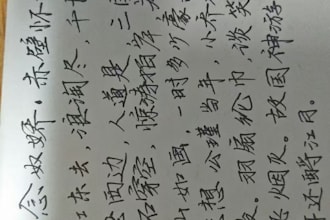 念奴娇·赤壁怀
江东去，浪淘尽，千
西边，人道是，三
石穿空，惊涛拍岸
如画，一时多少豪
想公瑾当年，小乔
。羽扇纶巾，谈笑
烟灭。故国神游
还酹江月。